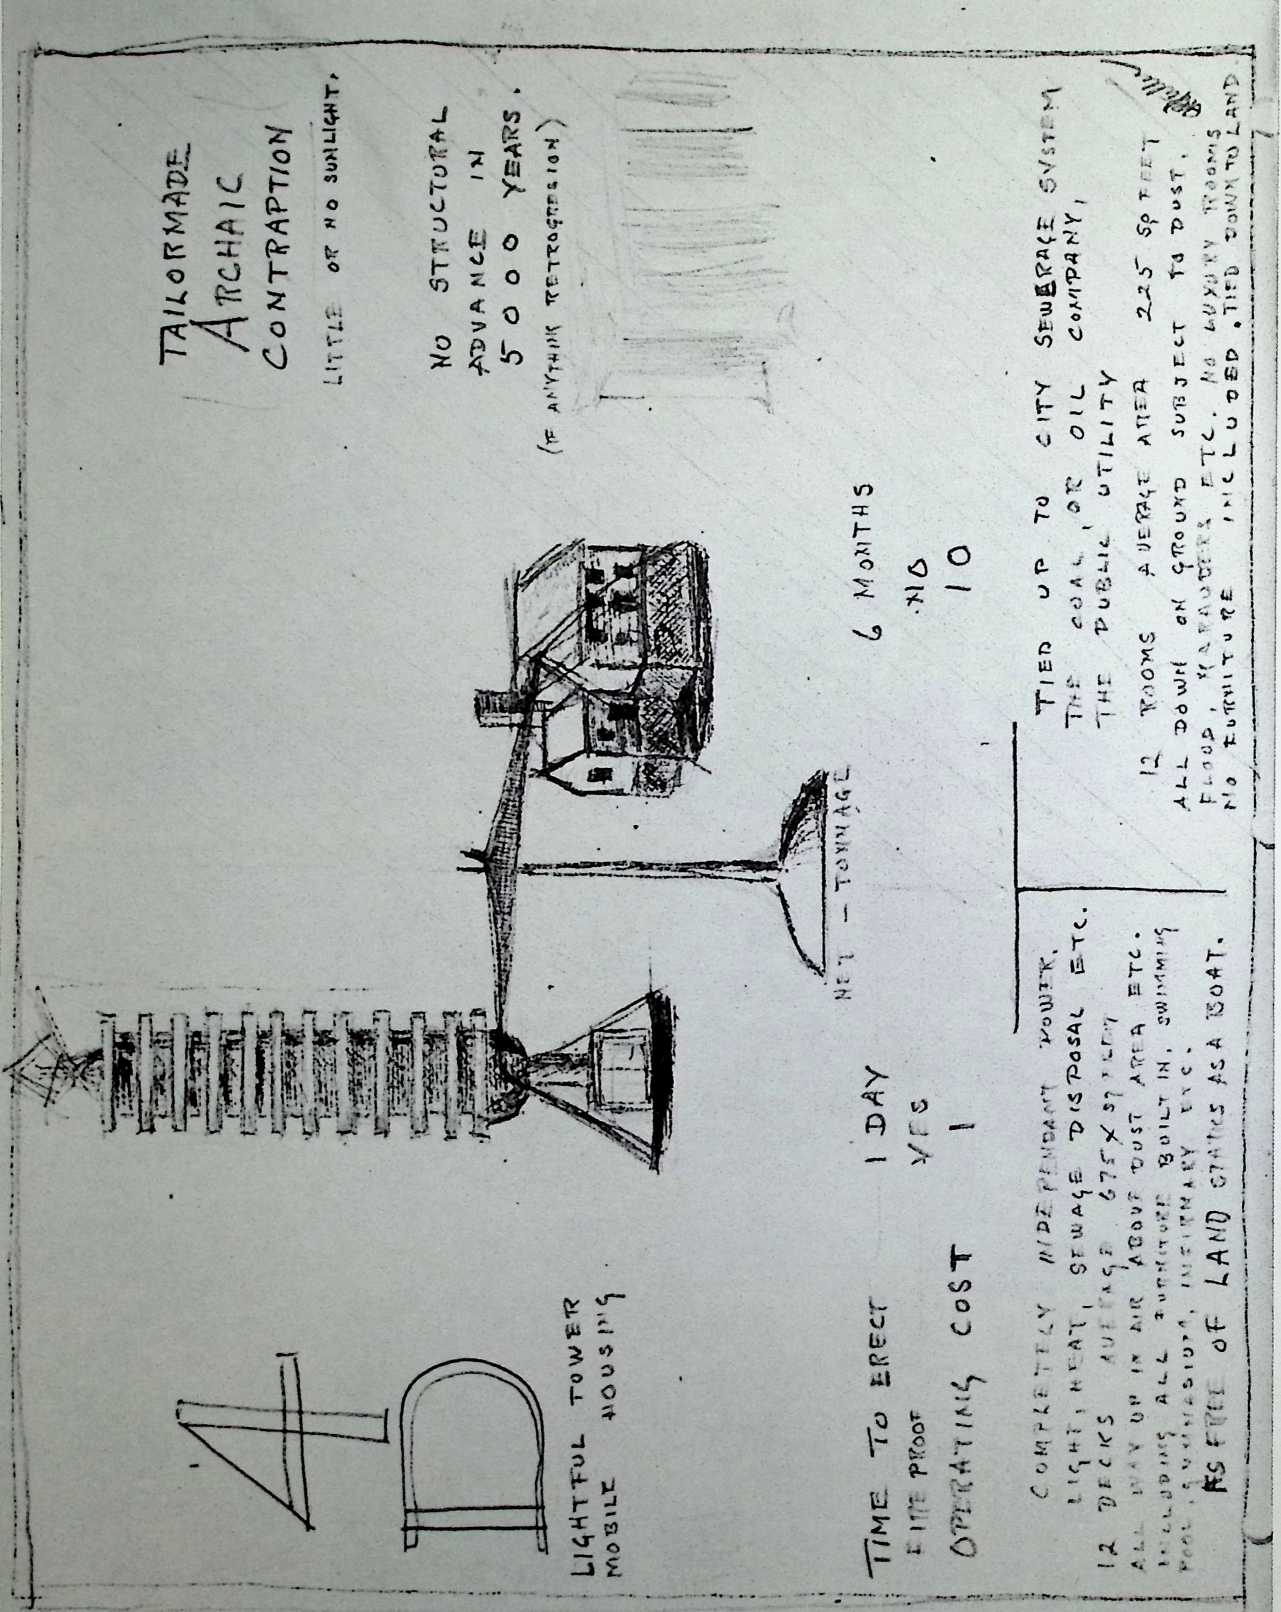 4D
LIGHTFUL TOWER
MOBILE HOUSING
TAILORMADE
ARCHAIC
CONTRAPTION
LITTLE OR NO SUNLIGHT.
NO STRUCTURAL
ADVANCE IN
5000 YEARS.
(IF ANYTHING RETROGRESION)
NET - TONNAGE
TIME TO ERECT 1 DAY 6 MONTHS
FIRE PROOF YES NO
OPERATING COST 1 10
COMPLETELY INDEPENDANT POWER,
LIGHT, HEAT, SEWAGE DISPOSAL ETC.
12 DECKS AVERAGE 675 SQ FEET
ALL WAY UP IN AIR ABOVE DUST AREA ETC.
INCLUDING ALL FURNITURE BUILT IN, SWIMMING
POOL, GYMNASIUM, INFIRMARY ETC.
AS FREE OF LAND AS A BOAT.
TIED UP TO CITY SEWERAGE SYSTEM
THE COAL, OR OIL COMPANY,
THE PUBLIC UTILITY
12 ROOMS AVERAGE AREA 225 SQ FEET
ALL DOWN ON GROUND SUBJECT TO DUST,
FLOOD, MARAUDERS ETC. NO LUXURY ROOMS
NO FURNITURE INCLUDED. TIED DOWN TO LAND.